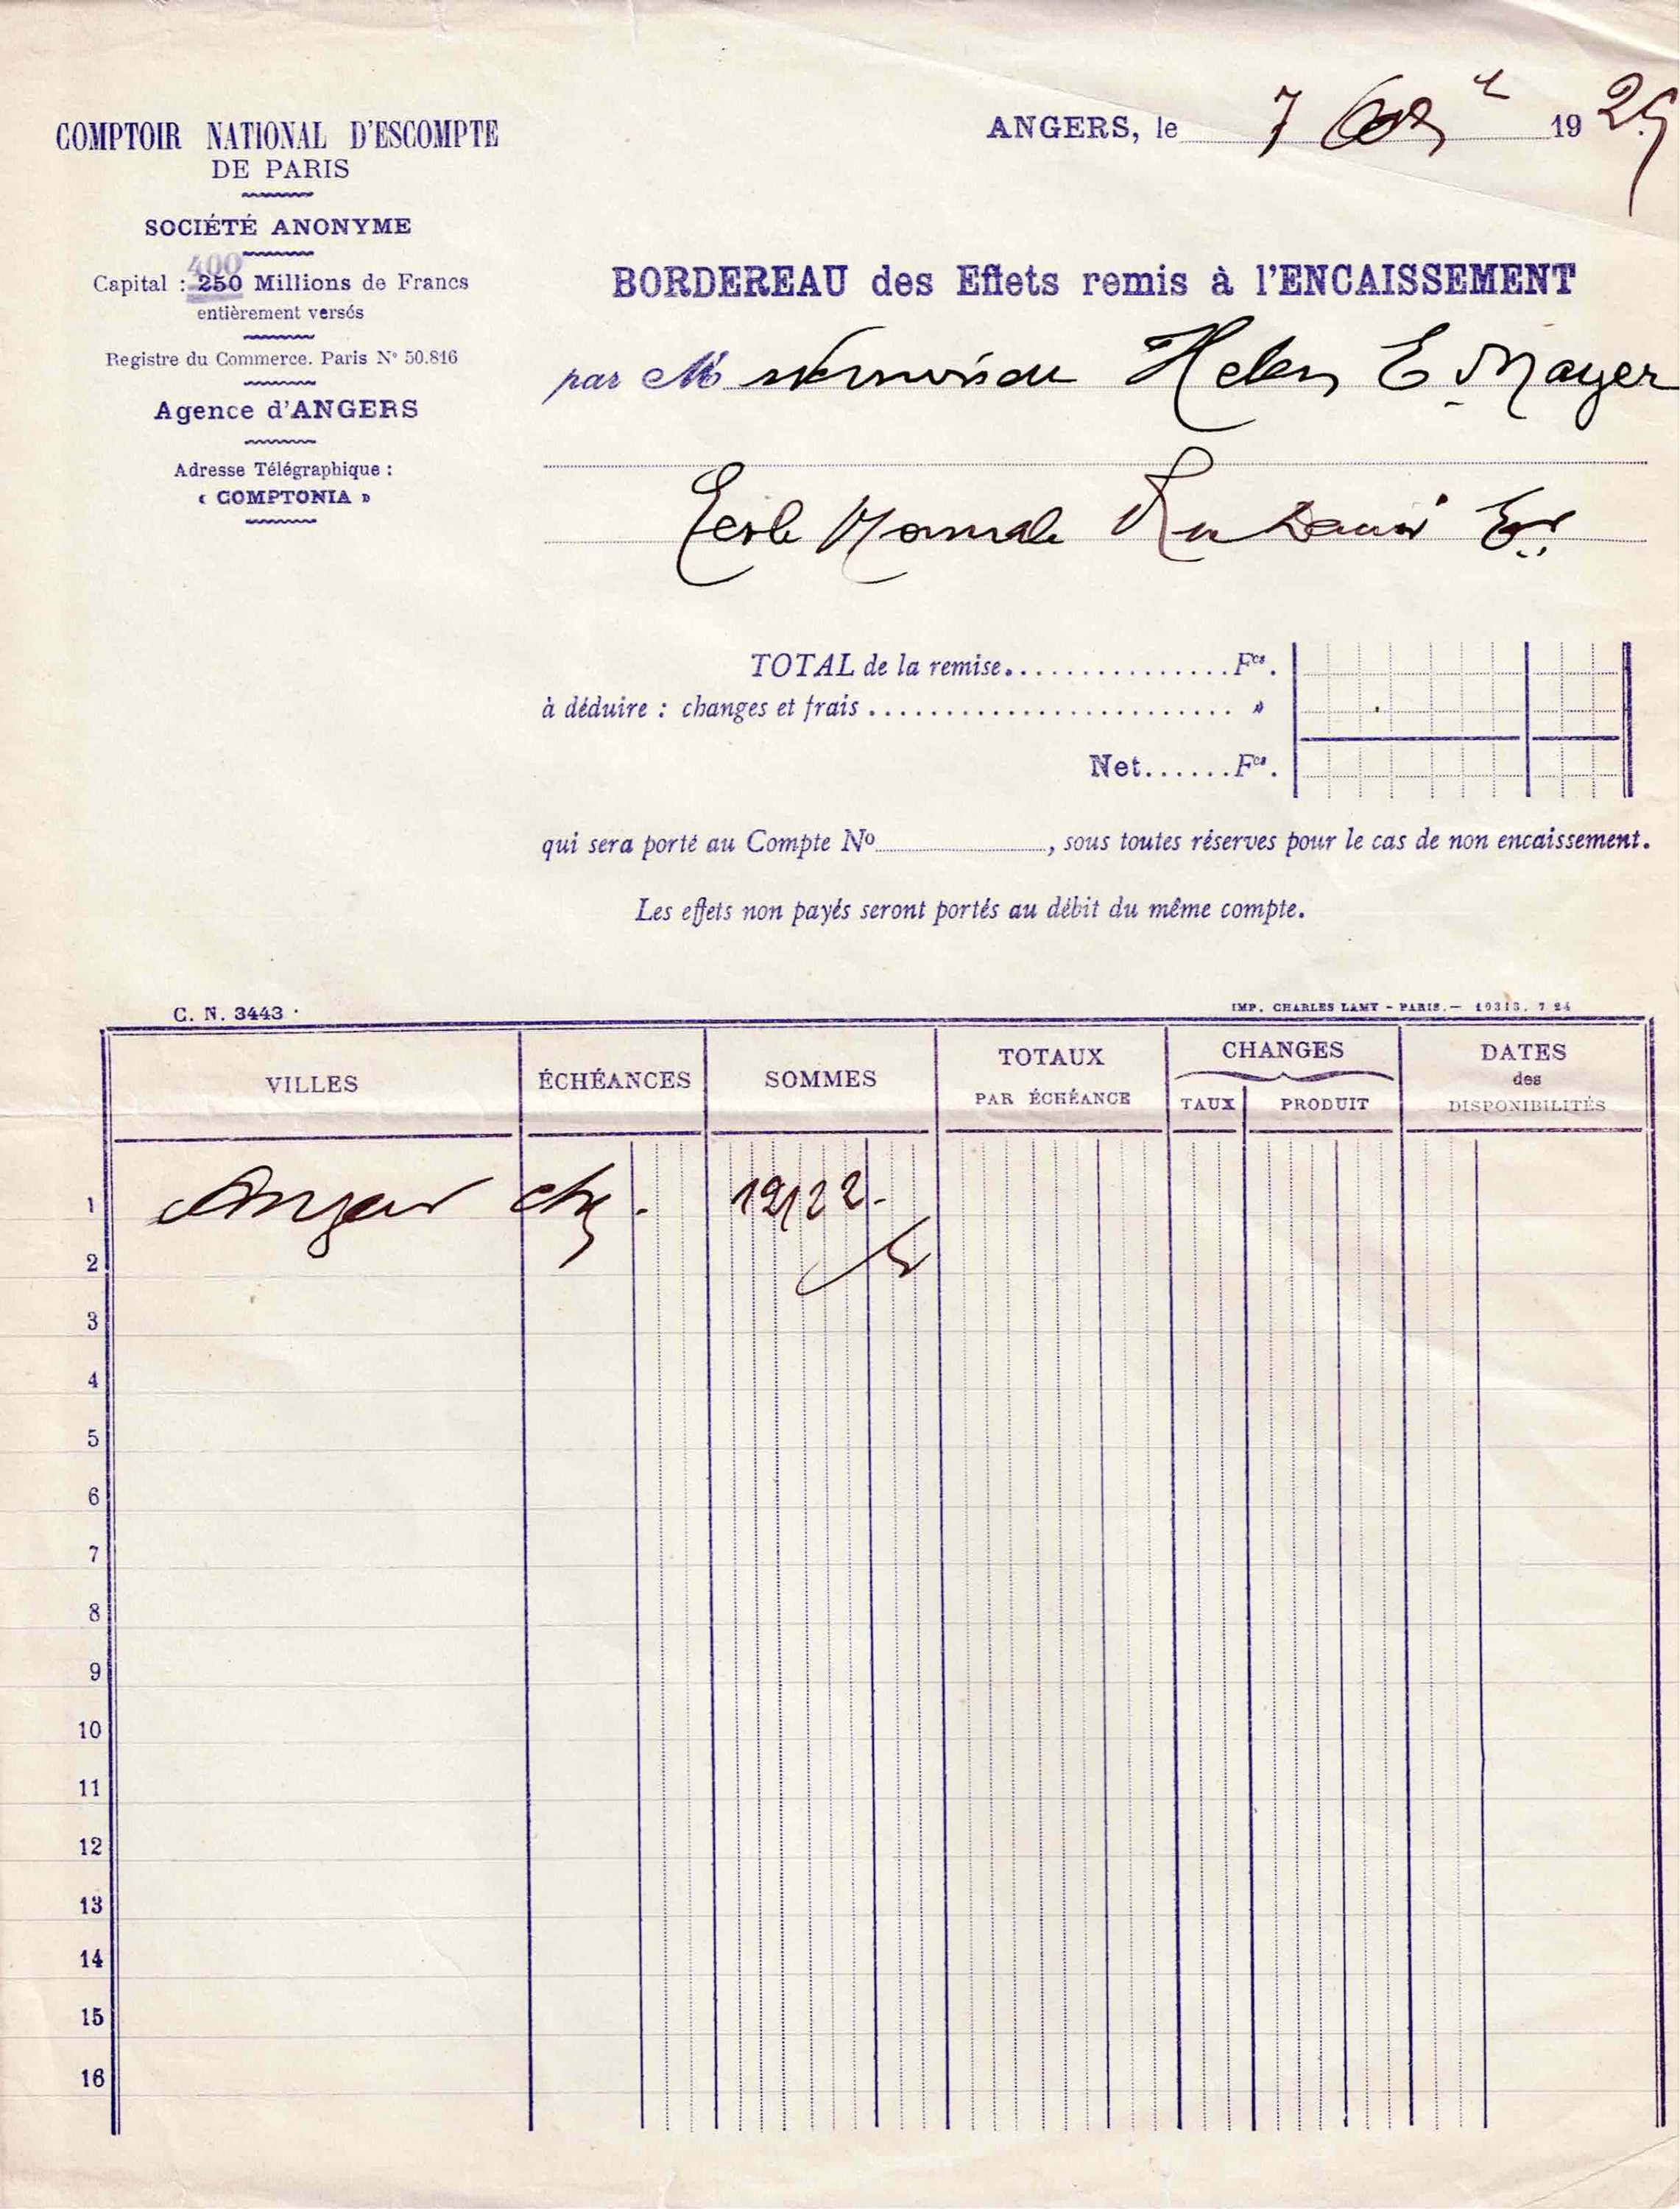 COMPTOIR NATIONAL D'ESCOMPTE
DE PARIS
SOCIÉTÉ ANONYME
400
Capital : 250 Millions de Francs
entièrement versés
Registre du Commerce. Paris N° 50.816
Agence d'ANGERS
Adresse Télégraphique :
« COMPTONIA »
ANGERS, le 7 1925
BORDEREAU des Effets remis à l'ENCAISSEMENT
par M Helen E. Mayer
Ecole Normale Rue
TOTAL de la remise................Fcs.
à déduire : changes et frais ........................ »
Net......Fcs.
qui sera porté au Compte No, sous toutes réserves pour le cas de non encaissement.
Les effets non payés seront portés au débit du même compte.
C. N. 3443
IMP. CHARLES LAMY - PARIS. — 19313. 7 24
VILLES ÉCHÉANCES SOMMES TOTAUX PAR ÉCHÉANCE CHANGES TAUX PRODUIT DATES des DISPONIBILITÉS
1 Angers chq. 1922.-
2
3
4
5
6
7
8
9
10
11
12
13
14
15
16